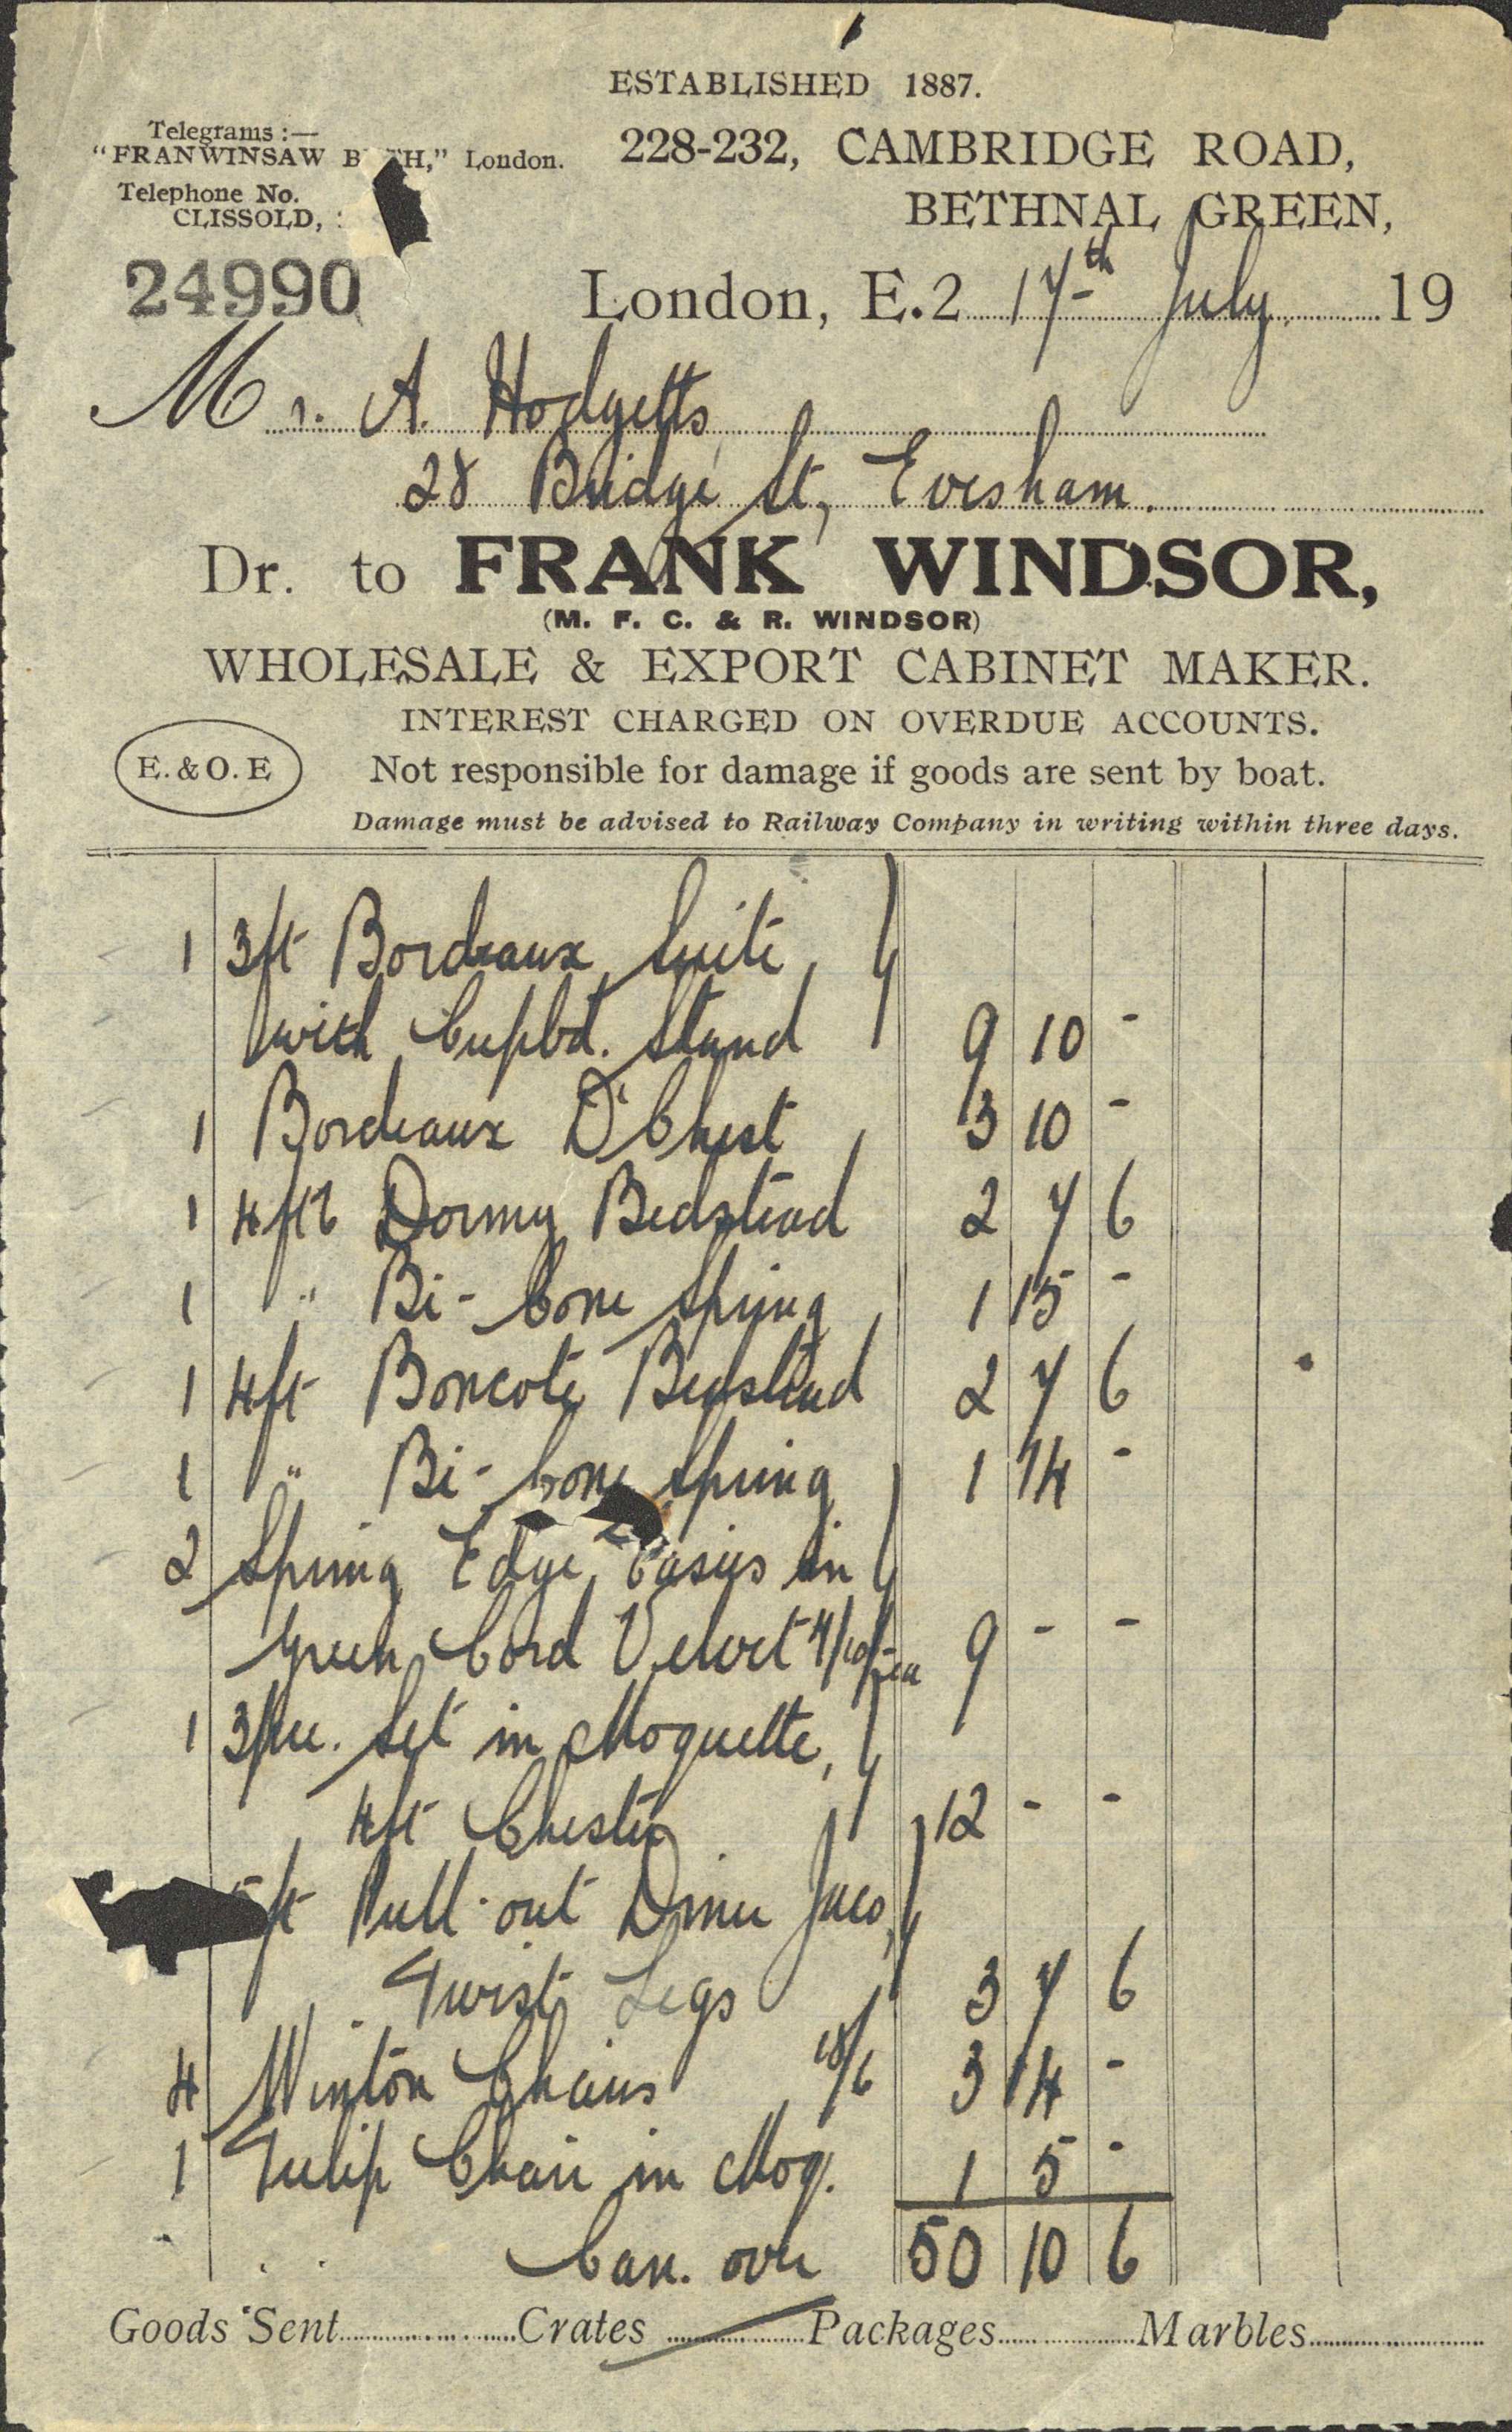 ESTABLISHED 1887.
Telegrams :—
"FRANWINSAW B TH," London.
Telephone No.
CLISSOLD,
228-232, CAMBRIDGE ROAD,
BETHNAL GREEN,
24990
London, E.2 17th July 19
Mr. A. Hodgetts,
28 Bridge St, Evesham.
Dr. to FRANK WINDSOR,
(M. F. C. & R. WINDSOR)
WHOLESALE & EXPORT CABINET MAKER.
INTEREST CHARGED ON OVERDUE ACCOUNTS.
E. & O. E
Not responsible for damage if goods are sent by boat.
Damage must be advised to Railway Company in writing within three days.
1 3ft Bordeaux Suite,
with Cupbd. Stand 9 10 -
1 Bordeaux D'Chest 3 10 -
1 4ft6 Dormy Bedstead 2 7 6
1 " Bi-Cone Spring 1 15 -
1 4ft Boncote Bedstead 2 7 6
1 " Bi-Cone Spring 1 14 -
2 Spring Edge Easies in
Green Cord Velvet 4/10/- ea 9 - -
1 3pce. Set in Moquette,
4ft Chester 12 - -
5ft Pull-out Diner Jaco,
Twist Legs 3 7 6
4 Winton Chairs 18/6 3 14 -
1 Tulip Chair in Moq. 1 5 -
Carr. over 50 10 6
Goods Sent Crates Packages Marbles